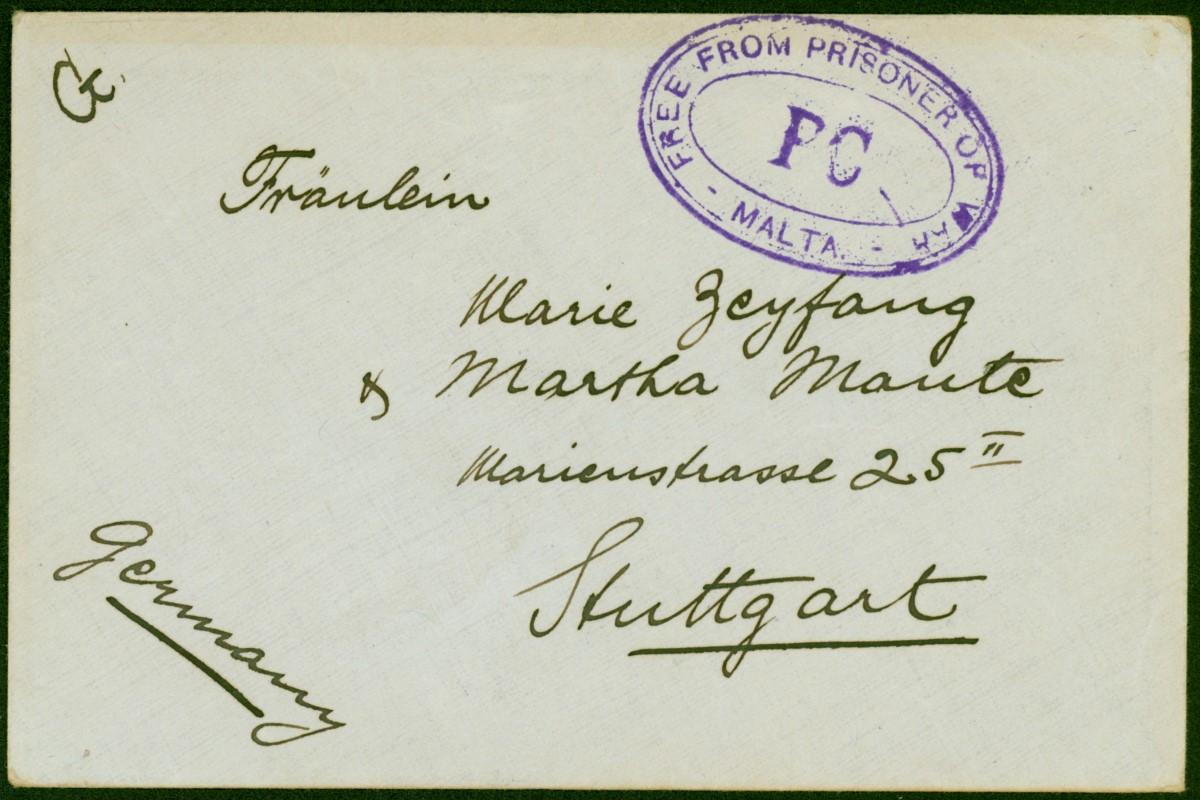 FREE FROM PRISONER OF WAR
PC
- MALTA. -
Fräulein
Marie Zeyfang
& Martha Maute
Marienstrasse 25 II
Stuttgart
Germany